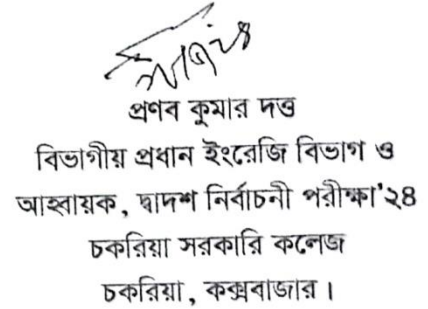 প্রণব কুমার দত্ত
বিভাগীয় প্রধান ইংরেজি বিভাগ ও
আহ্বায়ক, দ্বাদশ নির্বাচনী পরীক্ষা'২৪
চকরিয়া সরকারি কলেজ
চকরিয়া, কক্সবাজার।